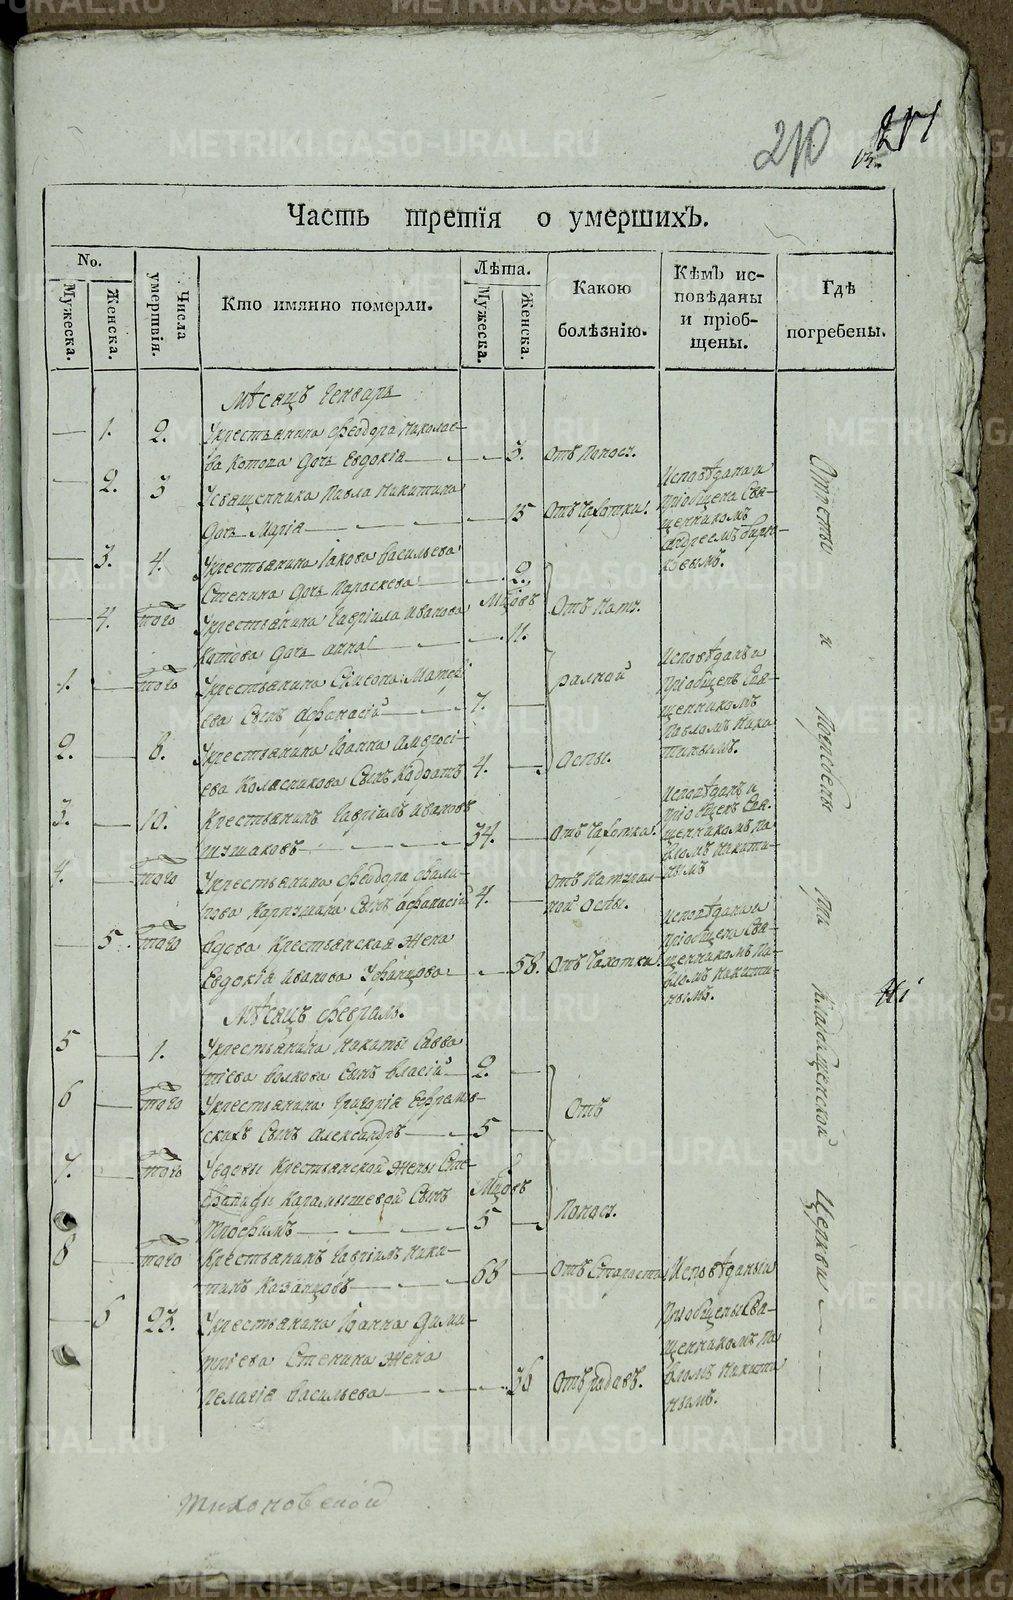 METRIKI.GASO-URAL.RU
210
211
Часть третія о умершихЪ.
No.
Мужеска.
Женска.
Числа умертвія.
Кто имянно померли.
Лѣта.
Мужеска.
Женска.
Какою болѣзнію.
КѣмЪ ис-
повѣданы
и пріоб-
щены.
Гдѣ
погребены.
Мѣсяцъ Генварь
1. 2. У крестьянина Феодора Николае-
ва Котова дочь Евдокія 3. отъ понос.
2. 3 У священника Павла Никитина
дочь Марія 15 отъ чахотки.
Исповѣдана и
пріобщена Свя-
щенникомъ
Андреемъ
3. 4. У крестьянина Іакова Васильева
Стенина дочь Параскева 2.
4. того У крестьянина Гавріила Иванова
Котова дочь Анна мцовъ 11.
Отъ нату-
ралной
Оспы.
1. того У крестьянина Симеона Матѳі-
ева сынъ Афанасій 7.
Исповѣданъ и
пріобщенъ Свя-
щенникомъ
Павломъ Ники-
тинымъ.
2. 8. У крестьянина Іоанна Амвросі-
ева Колясникова сынъ Кодратъ 4.
3. 10. Крестьянинъ Гавріилъ Ивановъ
34. отъ чахотки.
Исповѣданъ и
пріобщенъ Свя-
щенникомъ Па-
вломъ Никити-
нымъ
4. того У крестьянина Феодора Фили-
пова сынъ Афанасій 4. отъ натурал-
ной оспы.
5. того Вдова крестьянская жена
Евдокія Иванова 58. отъ чахотки.
Исповѣдана и
пріобщена Свя-
щенникомъ Па-
вломъ Никити-
нымъ.
Мѣсяцъ Февраль.
5 1. У крестьянина Никиты Савва
тѣева Волкова сынъ Власій 2.
6 того У крестьянина Григорія Ефремов-
скихъ сынъ Александръ 5
Отъ
Понос.
7. того У вдовы крестьянской жены Сте-
фаниды Карамышевой сынъ
Трофимъ мцовъ 5
8 того Крестьянинъ Гавріилъ Ники-
тинъ Казанцовъ 68 отъ старости
Исповѣданы и
пріобщены Свя-
щенникомъ Па
вломъ Никити
нымъ.
6 23. У крестьянина Іоанна Дими-
тріева Стенина жена
Пелагія Васильева 36 отъ родовъ.
Отпеты и погребены при кладбищенской Церкви
Тихоновской